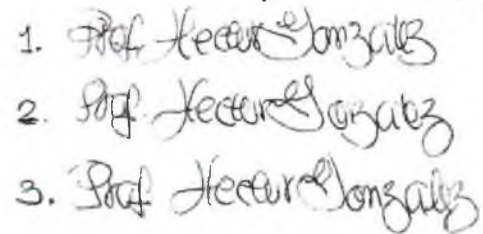 1. Prof. Hector Gonzalez
2. Prof. Hector Gonzalez
3. Prof Hector Gonzalez